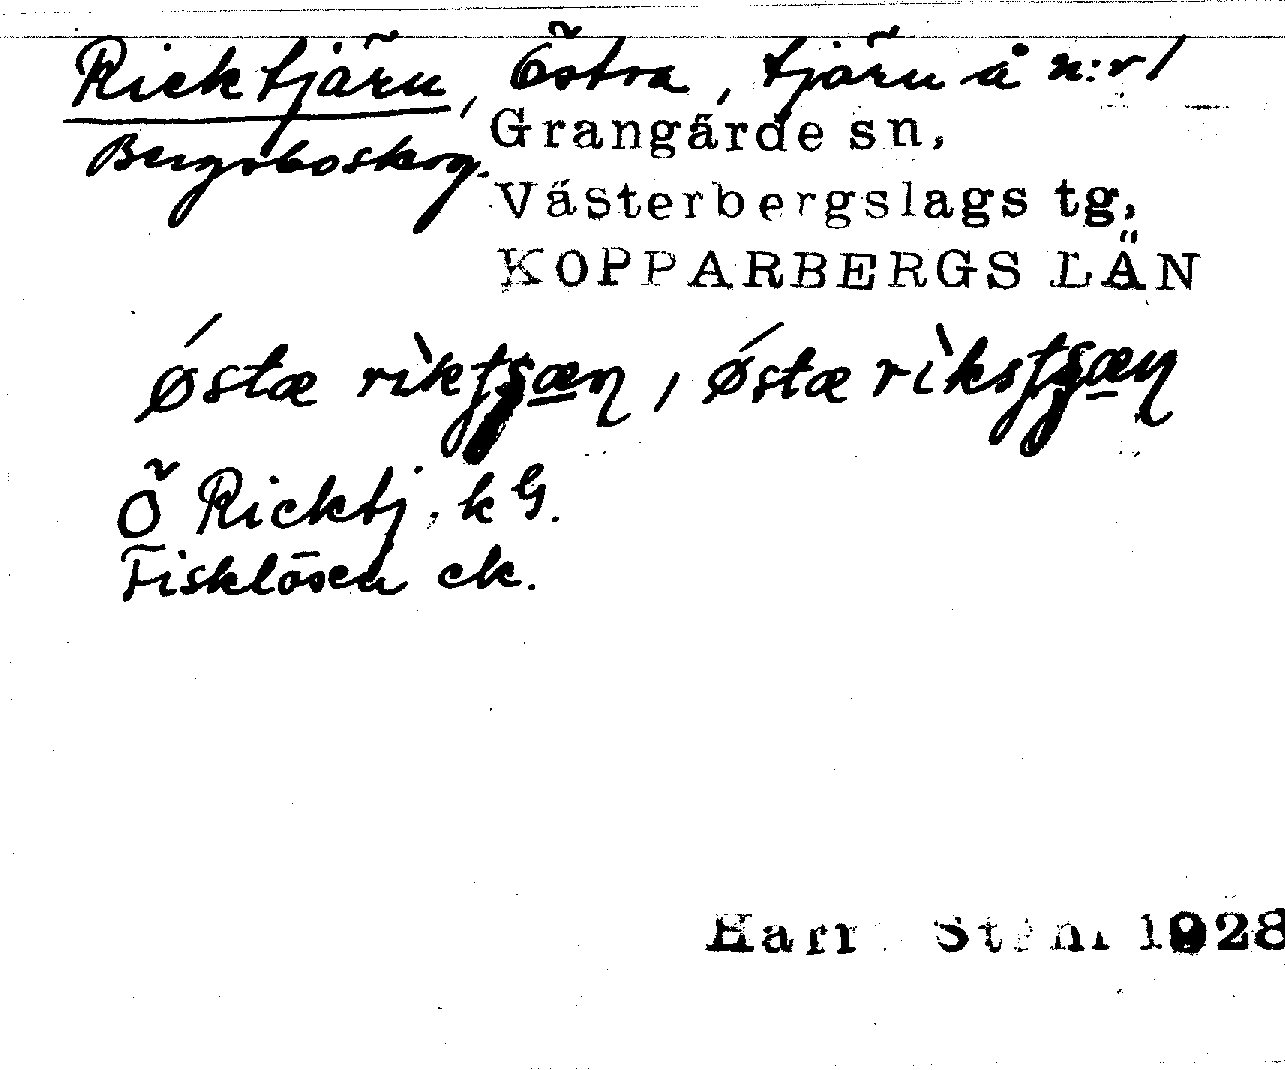 Ricktjärn, Östra, tjärn å n:r 1
Bergsboskog.
Grangärde sn,
Västerbergslags tg,
KOPPARBERGS LÄN
østæ
Ö Ricktj. k G.
Fisklösen ek.
Harr Ståhl 1928